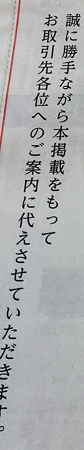 誠に勝手ながら本掲載をもって
お取引先各位へのご案内に代えさせていただきます。